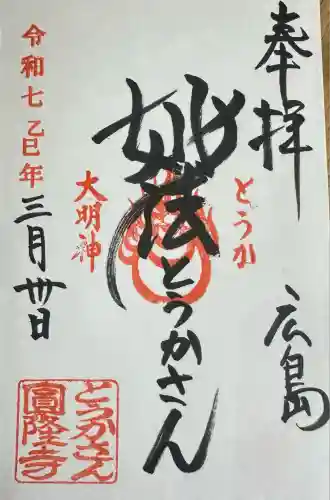 奉拝
広島
とうか
妙法
とうかさん
大明神
令和七乙巳年
三月卅日
とうかさん
圓隆寺